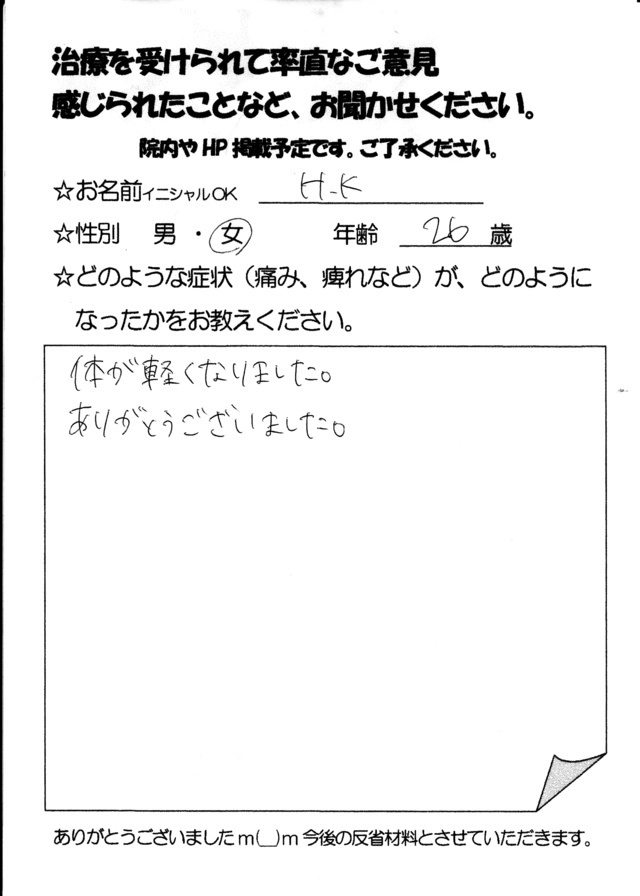 治療を受けられて率直なご意見
感じられたことなど、お聞かせください。
院内や HP 掲載予定です。ご了承ください。
☆お名前イニシャルOK H-K
☆性別 男・女 年齢 26 歳
☆どのような症状（痛み、痺れなど）が、どのように
なったかをお教えください。
体が軽くなりました。
ありがとうございました。
ありがとうございましたm(__)m今後の反省材料とさせていただきます。